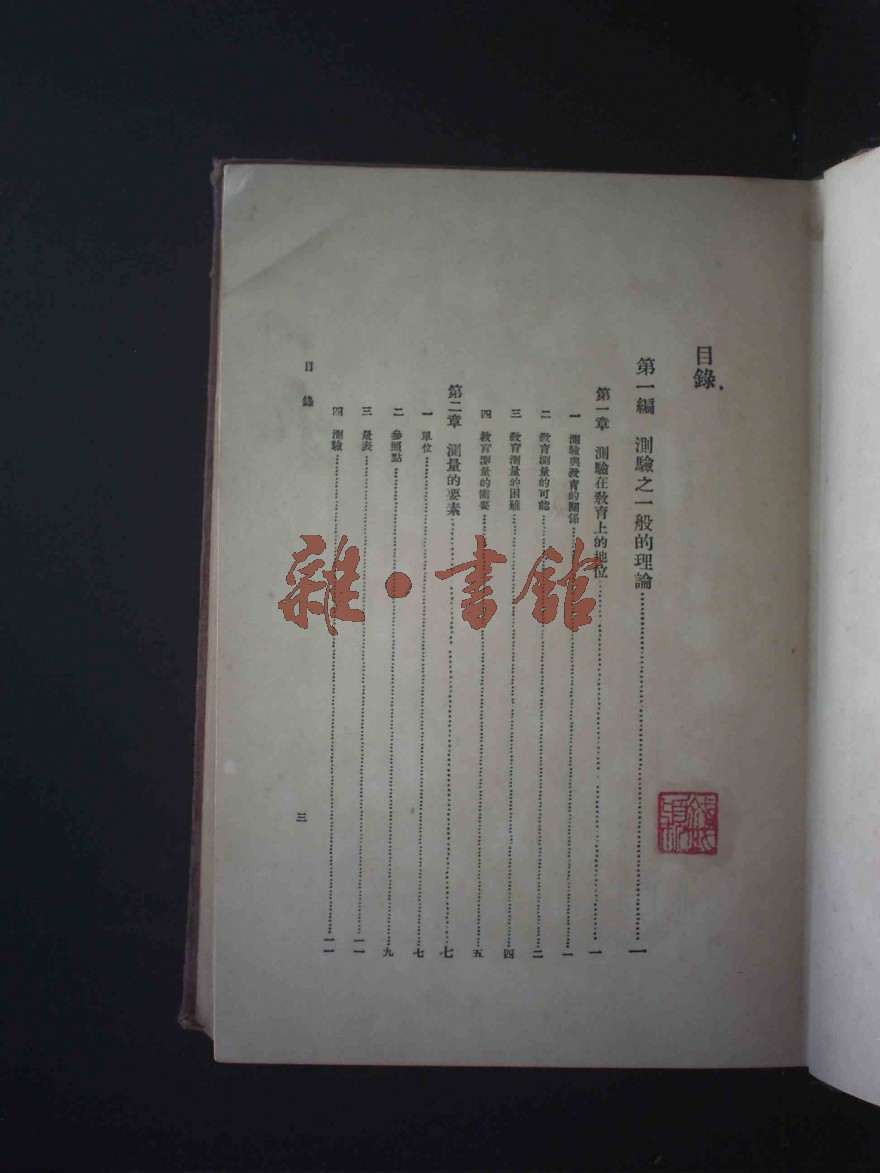 目錄
第一編 測驗之一般的理論……一
第一章 測驗在教育上的地位……一
一 測驗與教育的關係……一
二 教育測量的可能……二
三 教育測量的困難……四
四 教育測量的需要……五
第二章 測量的要素……七
一 單位……七
二 參照點……九
三 量表……一一
四 測驗……一一
目錄
三
雜·書館